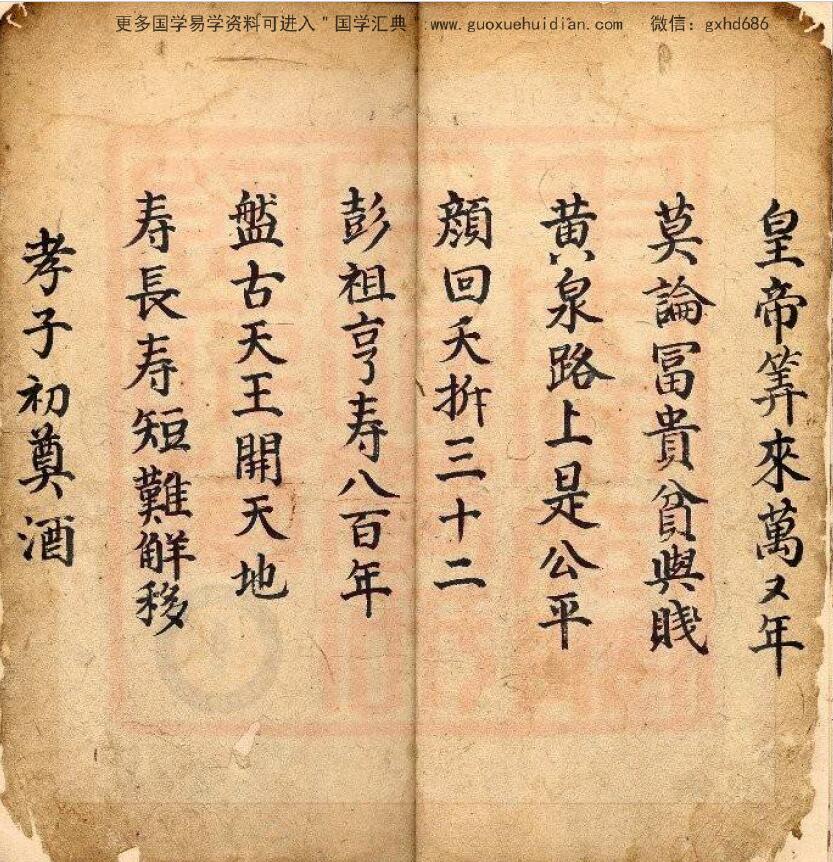 更多国学易学资料可进入＂国学汇典＂www.guoxuehuidian.com 微信：gxhd686
皇帝筭來萬又年
莫論冨貴貧與賎
黄泉路上是公平
顔回夭拆三十二
彭祖亨寿八百年
盤古天王開天地
寿長寿短難觧移
孝子初奠酒